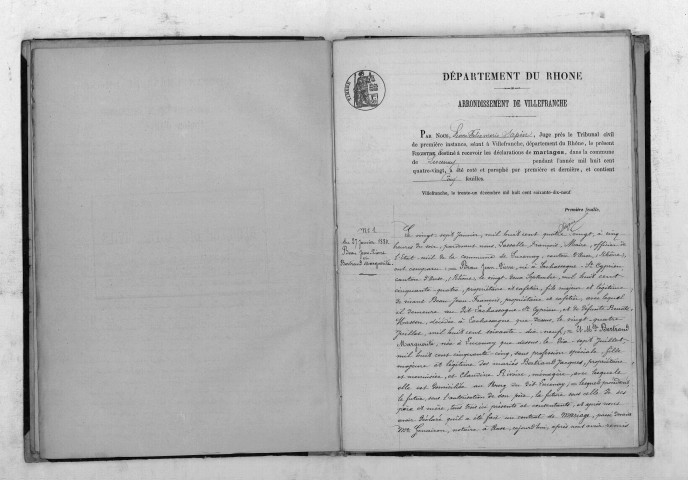 DÉPARTEMENT DU RHONE
ARRONDISSEMENT DE VILLEFRANCHE
PAR NOUS, Juge près le Tribunal civil
de première instance, séant à Villefranche, département du Rhône, le présent
REGISTRE, destiné à recevoir les déclarations de mariages, dans la commune
de Lucenay pendant l'année mil huit cent
quatre-vingt, a été coté et paraphé par première et dernière, et contient
Cinq feuilles.
Villefranche, le trente-un décembre mil huit cent soixante-dix-neuf
Première feuille.
N° 1
du 27 Janvier 1880
Jean Pierre
et
Bertrand Marguerite
Le vingt-sept Janvier, mil huit cent quatre vingt, à cinq
heures du soir, pardevant nous, Lassalle François, Maire, officier de
l'Etat-civil de la commune de Lucenay, canton d'Anse, (Rhône)
ont comparu: Jean Pierre, né à Lachassagne St Cyprien
canton d'Anse, (Rhône), le vingt deux Septembre, mil huit cent
cinquante quatre, propriétaire et cafetier, fils majeur et légitime
de vivant Jean François, propriétaire et cafetier, avec lequel
il demeure au dit Lachassagne St Cyprien, et de défunte Benoîte
décédée à Lachassagne que dessus, le vingt-quatre
Juillet, mil huit cent soixante dix neuf, & Et Mlle Bertrand
Marguerite, née à Lucenay que dessus le dix-sept Juillet,
mil huit cent cinquante cinq, sans profession spéciale, fille
majeure et légitime des mariés Bertrand Jacques, propriétaire
et menuisier, et Claudine Rivière, ménagère, avec lesquels
elle est domiciliée au Bourg du dit Lucenay; a lesquels procédant
le futur, sous l'autorisation de son père, la future sous celle de ses
père et mère, tous trois ici présents et consentants, et après nous
avoir déclaré qu'il a été fait un contrat de Mariage, passé devant
Me notaire à Anse, aujourd'hui, après nous avoir remis